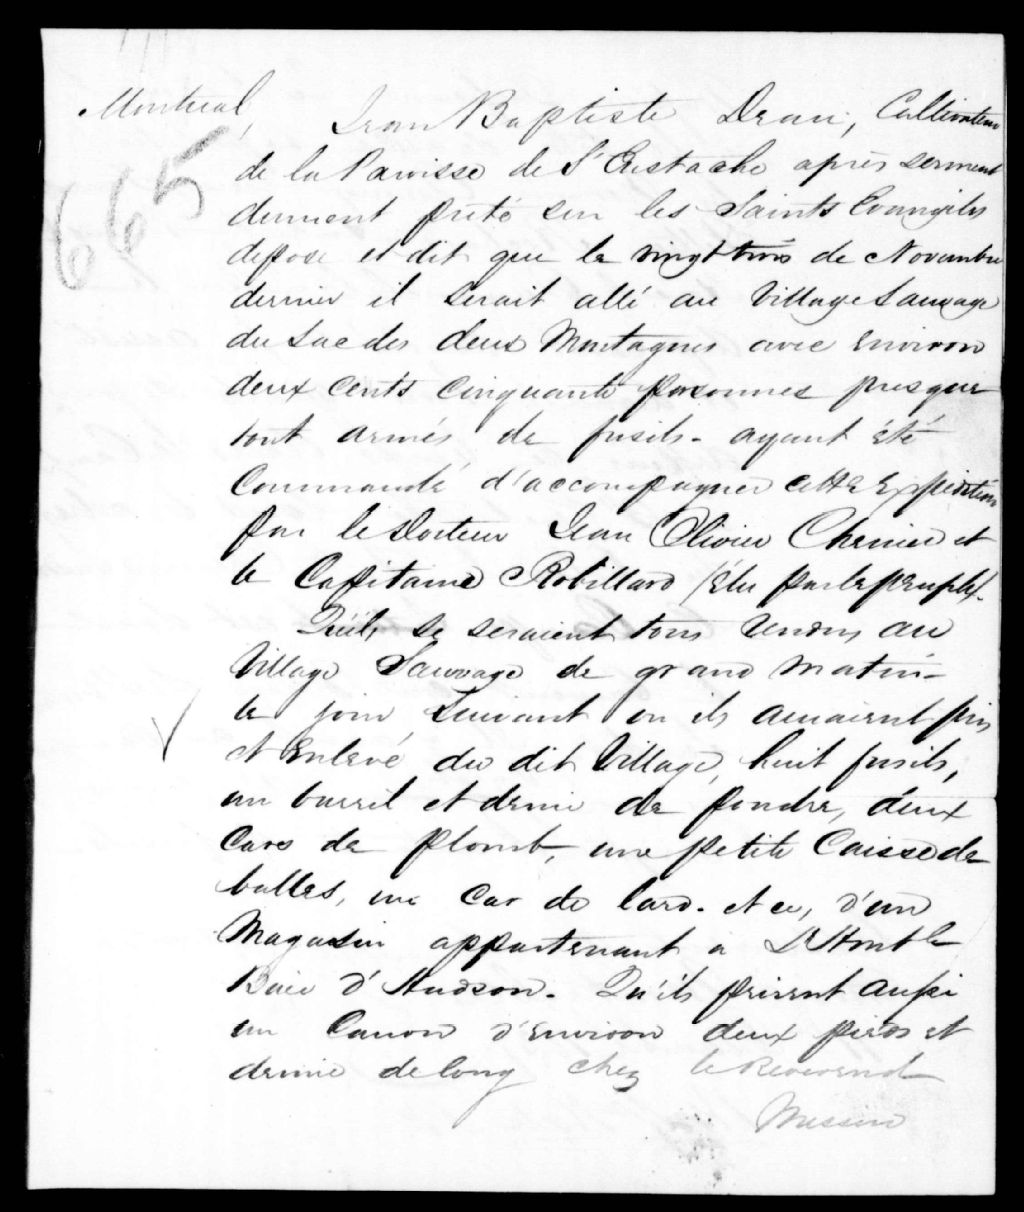 Montreal,
Jean Baptiste Drau, Cultivateur
665
de la Paroisse de St Eustache après serment
dument prété sur les Saints Evangiles
depose et dit que le vingt trois de Novembre
dernier il serait allé au Village Sauvage
du Lac des deux Montagnes avec Environ
deux cents cinquante personnes presque
tout armés de fusils. ayant été
Commandé d'accompagner cette Expedition
par le Docteur Jean Olivier Chenier et
le Capitaine Robillard /Elu par le peuple/.
Qu'ils se seraient tous rendus au
Village Sauvage de grand matin
le jour Suivant ou ils auraient pris
et Enlevé du dit Village, huit fusils,
un barril et demie de poudre, deux
Cars de plomb, une petite Caisse de
balles, un Car de lard. et ce, d'un
Magasin appartenant a L'Honble
Baie d'Hudson. Qu'ils prirent aussi
un Canon d'Environ deux pieds et
demie de long chez le Reverend
Messire